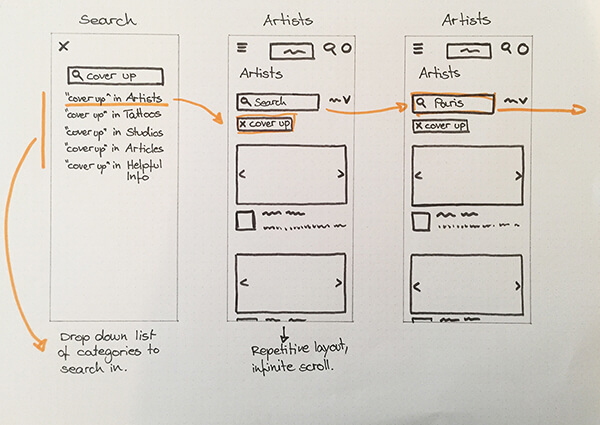 Search
x
cover up
"cover up" in Artists
"cover up" in Tattoos
"cover up" in Studios
"cover up" in Articles
"cover up" in Helpful
Info
Drop down list
of categories to
search in.
Artists
Artists
Search
x cover up
Repetitive layout,
infinite scroll.
Artists
Artists
Paris
x cover up